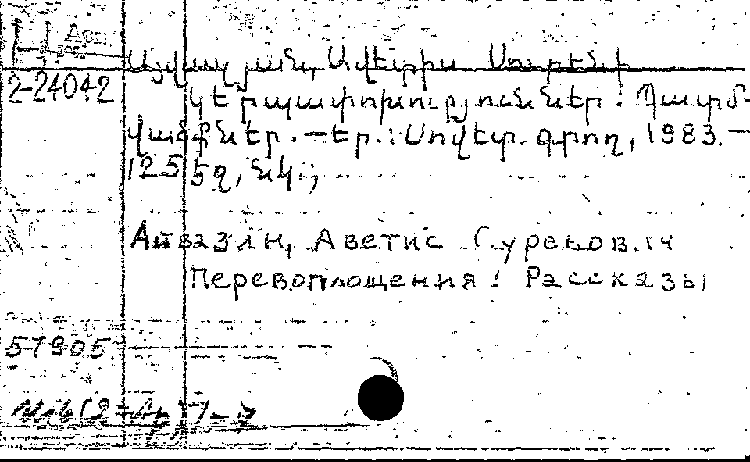 Այվազյան, Ավետիս Սուրենի
2-24042
Կերպափոխություններ: Պատմ-
վածքներ.—Եր.: Սովետ. գրող, 1983.—
125 էջ, նկ.;
Айвазян, Аветис Суренович
Перевоплощения: Рассказы
57905